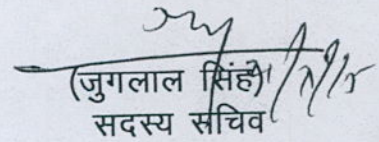 (जुगलाल सिंह)
सदस्य सचिव